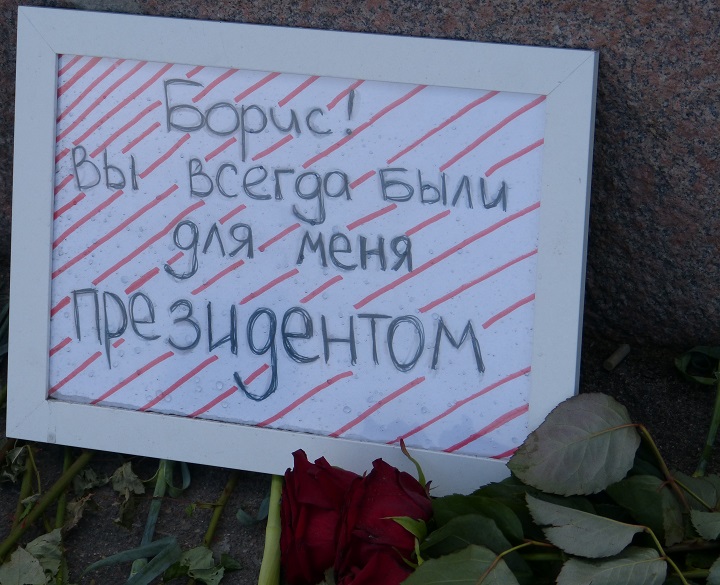 Борис!
вы всегда были
для меня
президентом